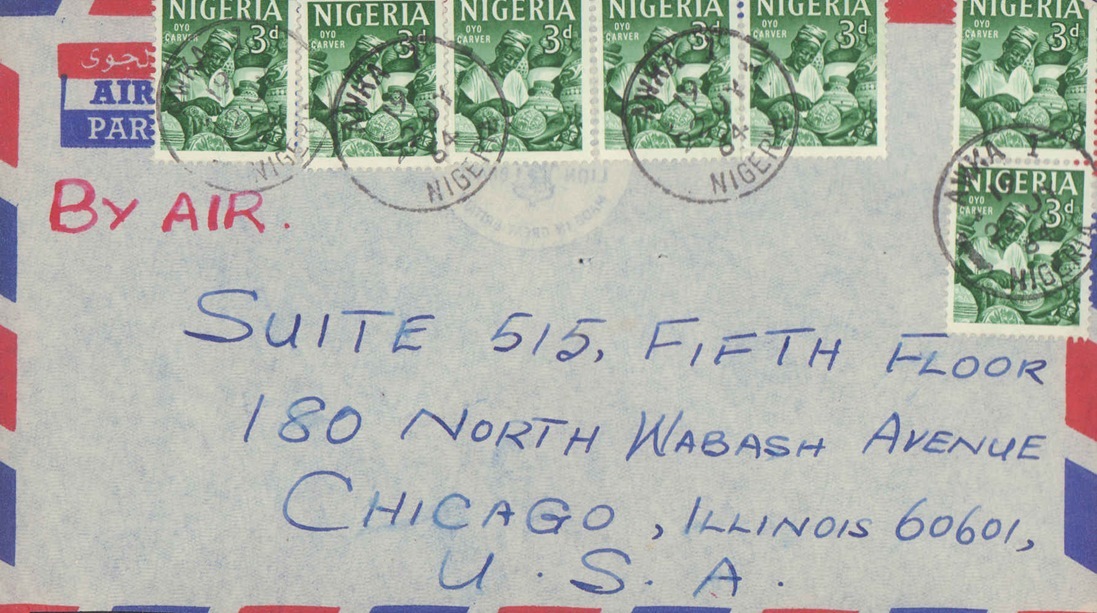 NIGERIA NIGERIA NIGERIA NIGERIA NIGERIA NIGERIA
OYO CARVER 3d OYO CARVER 3d OYO CARVER 3d OYO CARVER 3d OYO CARVER 3d OYO CARVER 3d
AIR
PAR
AWKA 19 NIGERIA
AWKA 19 64 NIGERIA
AWKA 19 64 NIGERIA
By AIR.
LION
NIGERIA
OYO CARVER 3d
AWKA 64 NIGERIA
SUITE 515, FIFTH FLOOR
180 NORTH WABASH AVENUE
CHICAGO, ILLINOIS 60601,
U.S.A.